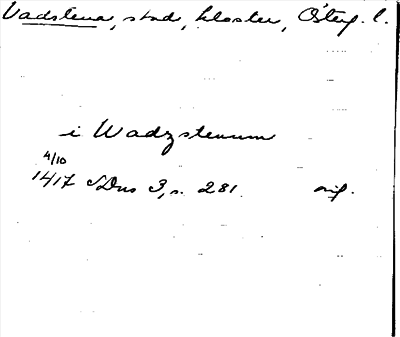 Vadstena, stad, kloster, Österg. l.
i Wadzstenum
4/10
1417 SDns 3, s. 281. orig.